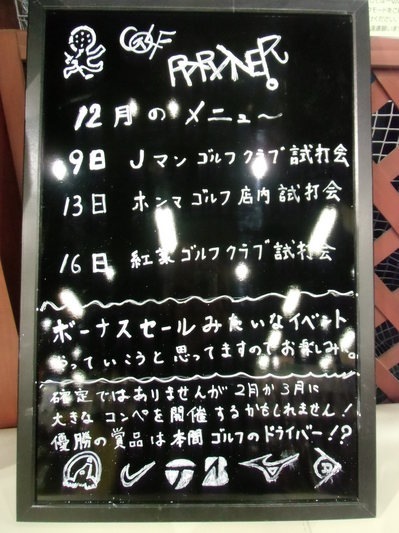 GOLF
PARTNER
12月のメニュ〜
9日 Jマンゴルフクラブ試打会
13日 ホンマゴルフ店内試打会
16日 紅葉ゴルフクラブ試打会
ボーナスセールみたいなイベント
やっていこうと思ってますのでお楽しみ。
確定ではありませんが2月か3月に
大きなコンペを開催するかもしれません！
優勝の賞品は本間ゴルフのドライバー!?